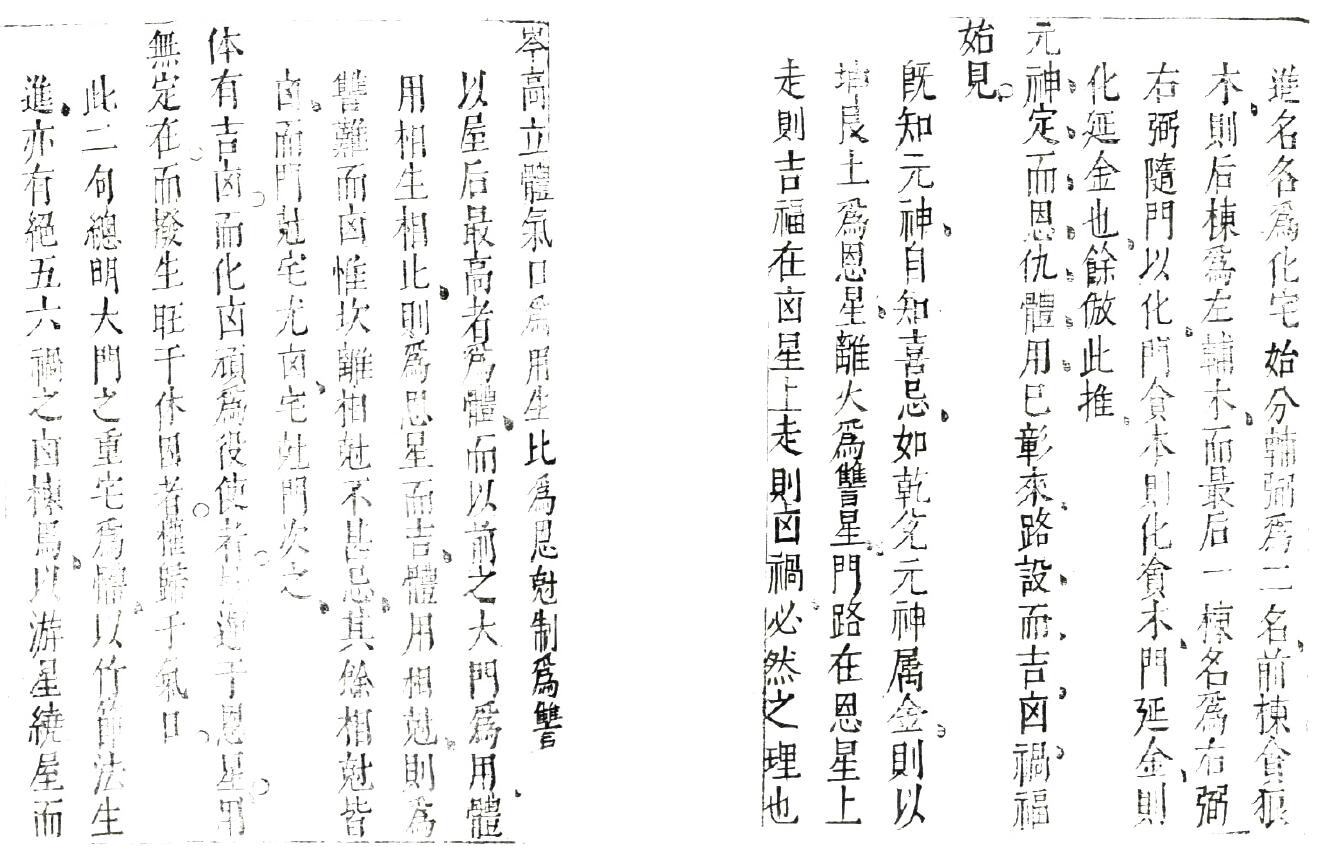 進名名為化宅始分輔弼為二名前棟貪狼
木則后棟為左輔木而最后一棟名為右弼
右弼隨門以化門貪木則化貪木門延金則
化延金也餘倣此推
元神定而恩仇體用已彰來路設而吉凶禍福
始見
既知元神自知喜忌如乾兊元神属金則以
坤艮土為恩星離火為讐星門路在恩星上
走則吉福在凶星上走則凶禍必然之理也
岑高立體氣口為用生比為恩尅制為讐
以屋后最高者為體而以前之大門為用體
用相生相比則為恩星而吉體用相尅則為
讐難而凶惟坎離相尅不甚忌其餘相尅皆
凶而門尅宅尤凶宅尅門次之
体有吉凶而化凶頑為役使者進于恩星用
無定在而撥生旺于休囚者權歸于氣口
此二句總明大門之重宅為體以竹節法生
進亦有絕五六禍之凶棟焉以游星繞屋而